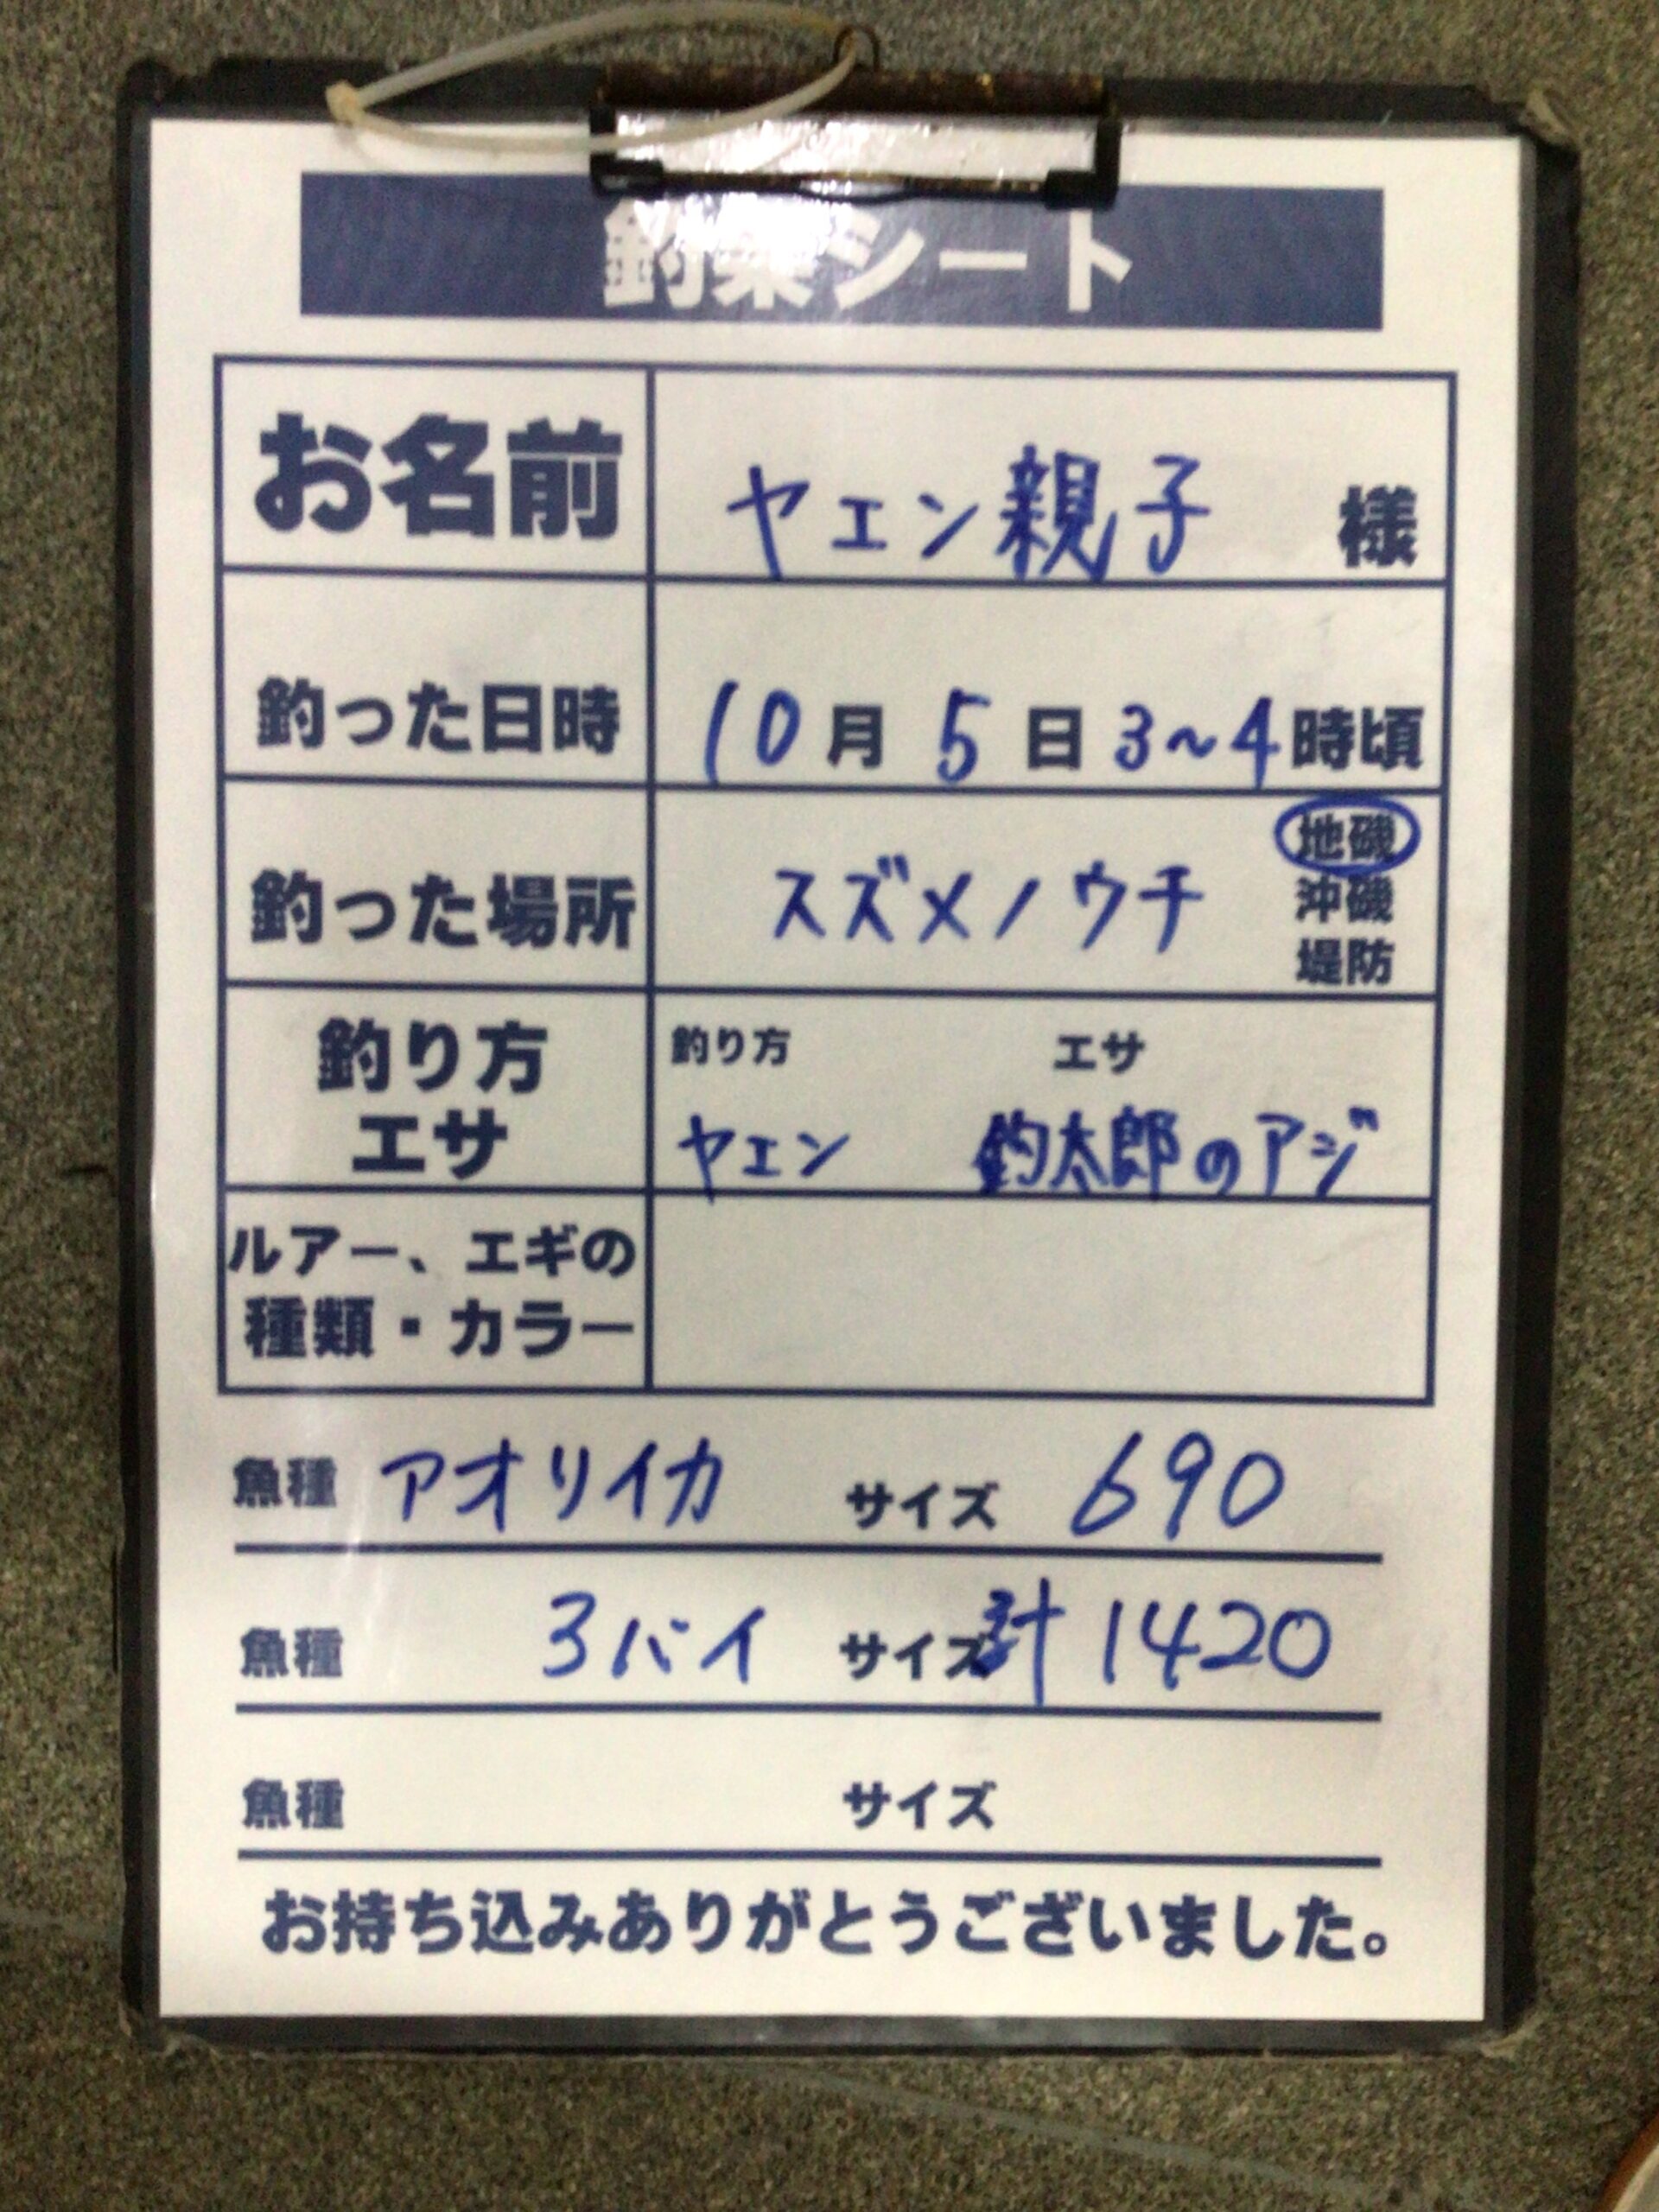 釣果シート
お名前 ヤエン親子 様
釣った日時 10月 5日 3~4時頃
釣った場所 スズメノウチ 地磯
沖磯
堤防
釣り方 エサ 釣り方 エサ
ヤエン 釣太郎のアジ
ルアー、エギの
種類・カラー
魚種 アオリイカ サイズ 690
魚種 3バイ サイズ 計 1420
魚種 サイズ
お持ち込みありがとうございました。